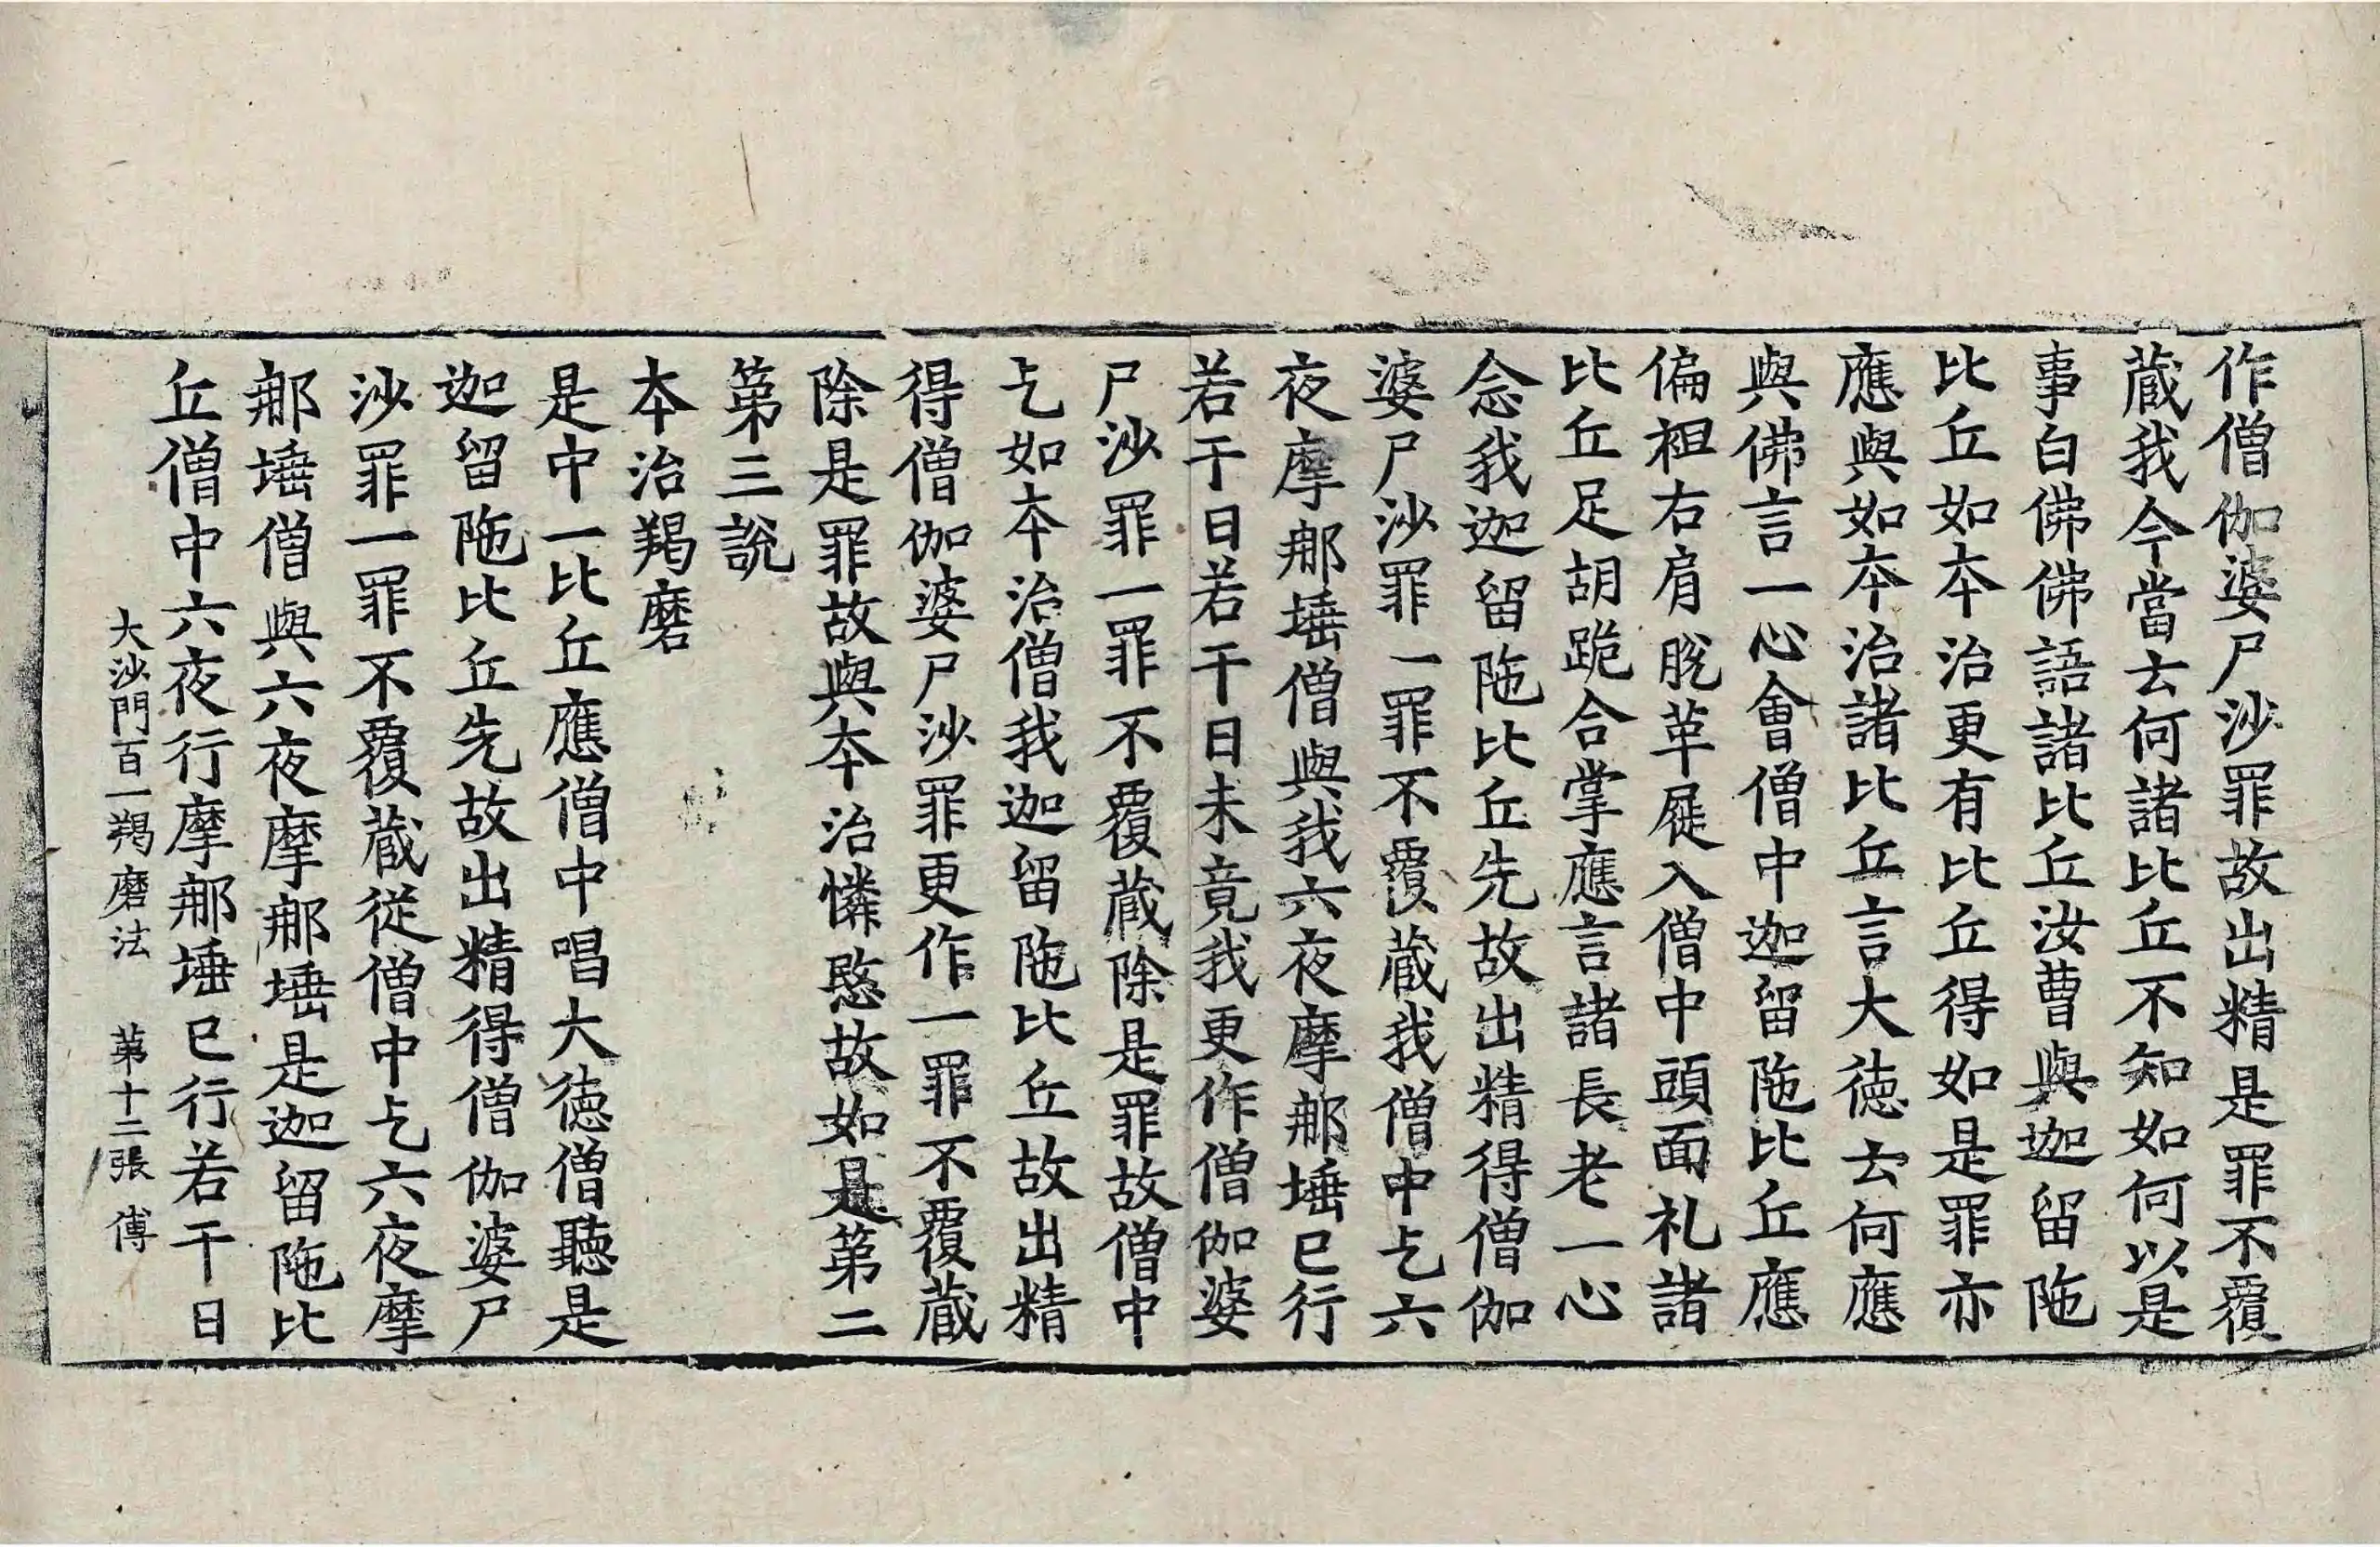 作僧伽婆尸沙罪故出精是罪不覆
蔵我今當云何諸比丘不知如何以是
事白佛佛語諸比丘汝曹與迦留陁
比丘如夲治更有比丘得如是罪亦
應與如夲治諸比丘言大徳云何應
與佛言一心會僧中迦留陁比丘應
偏袒右肩脫革屣入僧中頭面礼諸
比丘足胡跪合掌應言諸長老一心
念我迦留陁比丘先故出精得僧伽
婆尸沙罪一罪不覆蔵我僧中乞六
夜摩那埵僧與我六夜摩那埵已行
若干日若干日未竟我更作僧伽婆
尸沙罪一罪不覆蔵除是罪故僧中
乞如夲治僧我迦留陁比丘故出精
得僧伽婆尸沙罪更作一罪不覆蔵
除是罪故與夲治憐愍故如是第二
第三說
夲治羯磨
是中一比丘應僧中唱大徳僧聽是
迦留陁比丘先故出精得僧伽婆尸
沙罪一罪不覆蔵従僧中乞六夜摩
那埵僧與六夜摩那埵是迦留陁比
丘僧中六夜行摩那埵已行若干日
大沙門百一羯磨法 苐十二張 傅